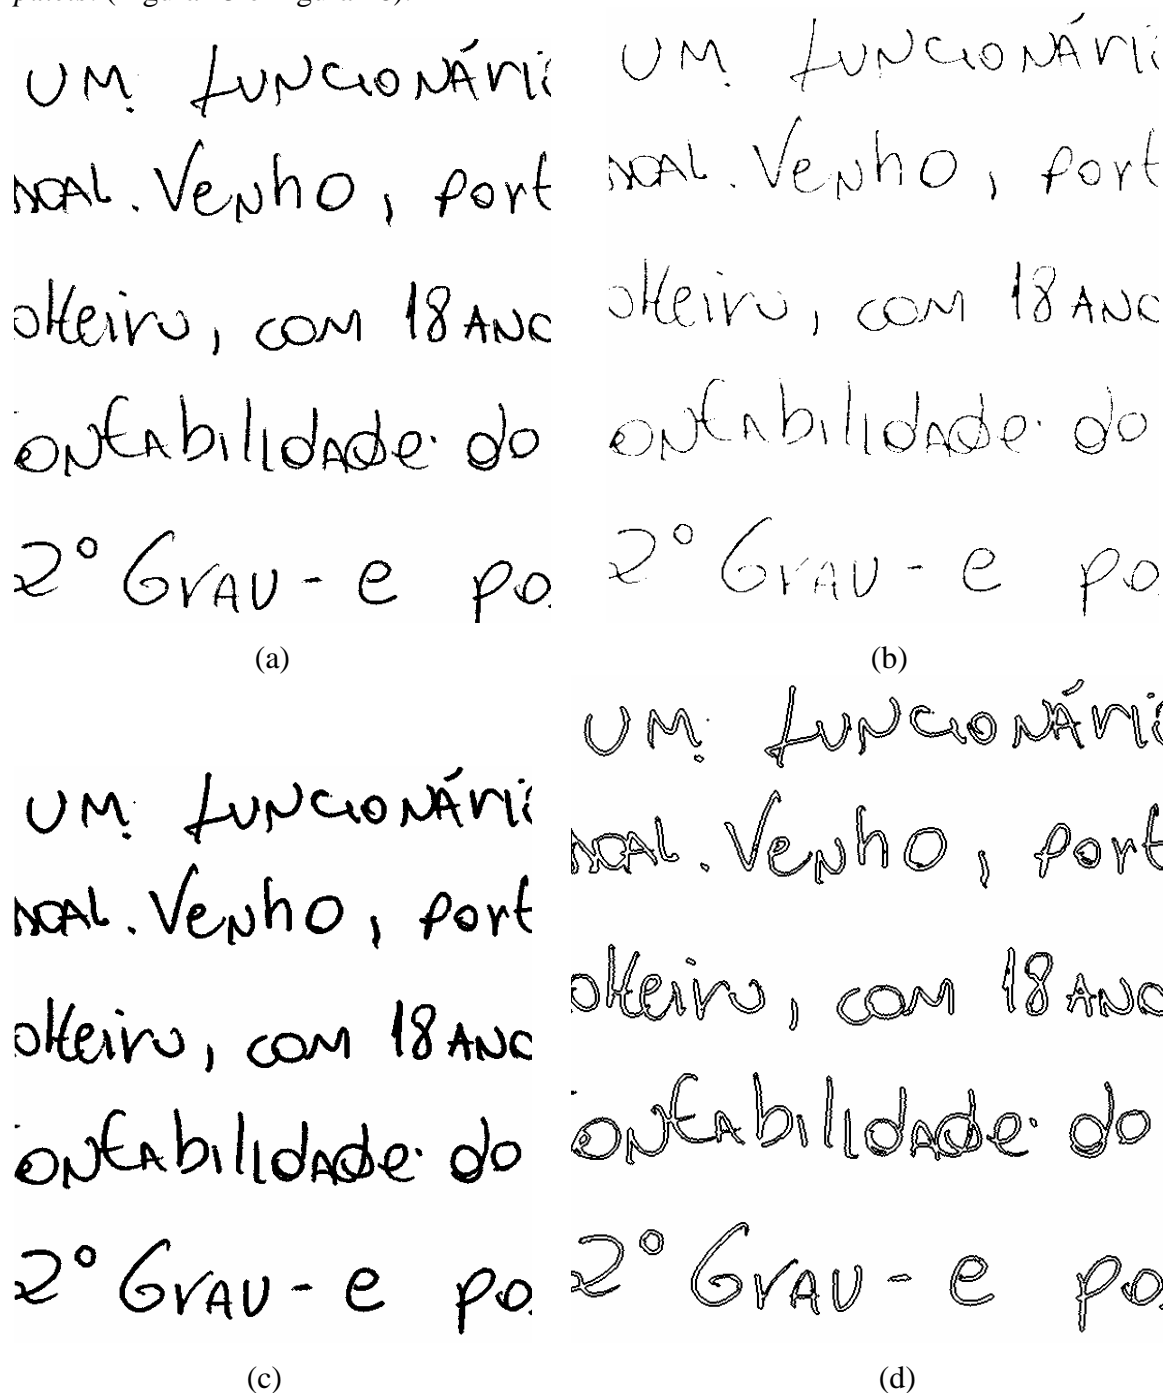 UM. fUNCIONÁRi
Venho, port
olteiro, com 18 ANO
ontAbilidade do
2º GrAU - e po
UM. fUNCIONÁRi
Venho, port
olteiro, com 18 ANO
ontAbilidade do
2º GrAU - e po
(a) (b)
UM. fUNCIONÁRi
Venho, port
olteiro, com 18 ANO
ontAbilidade do
2º GrAU - e po
UM. fUNCIONÁRi
Venho, port
olteiro, com 18 ANO
ontAbilidade do
2º GrAU - e po
(c) (d)